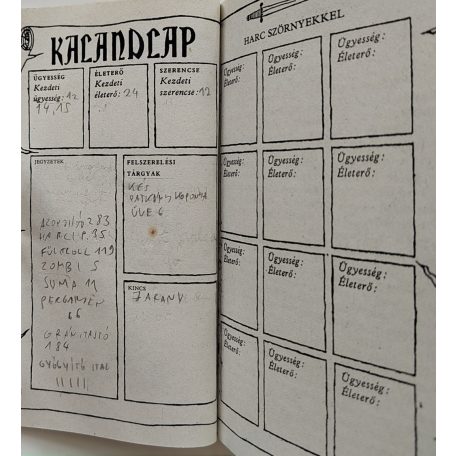 KALANDLAP
ÜGYESSÉG
Kezdeti
ügyesség: 12
14, 15
ÉLETERŐ
Kezdeti
életerő: 24
SZERENCSE
Kezdeti
szerencse: 12
JEGYZETEK
283
35
FÜLTOLL 119
ZOMBI 5
SUMA 11
PERGAMEN
66
GRÁNITAJTÓ
184
GYÓGYÍTÓ ITAL
||||||
FELSZERELÉSI
TÁRGYAK
KÉS
PATKÁNYKOPONYA
ÜVEG
KINCS
7 ARANY
HARC SZÖRNYEKKEL
Ügyesség:
Életerő:
Ügyesség:
Életerő:
Ügyesség:
Életerő:
Ügyesség:
Életerő:
Ügyesség:
Életerő:
Ügyesség:
Életerő:
Ügyesség:
Életerő:
Ügyesség:
Életerő:
Ügyesség:
Életerő:
Ügyesség:
Életerő:
Ügyesség:
Életerő:
Ügyesség:
Életerő: